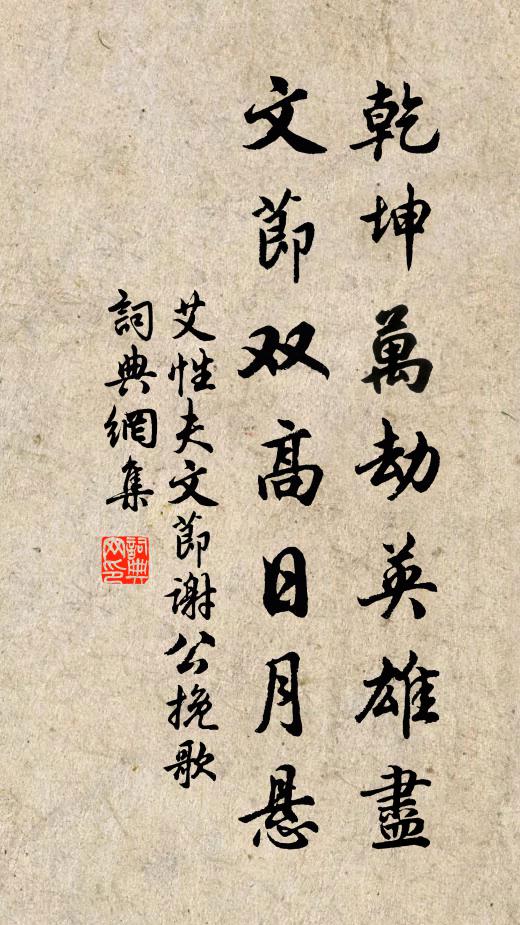 乾坤萬劫英雄盡
文節双高日月懸
艾性夫文節謝公挽歌
詞典網集
詞典网印